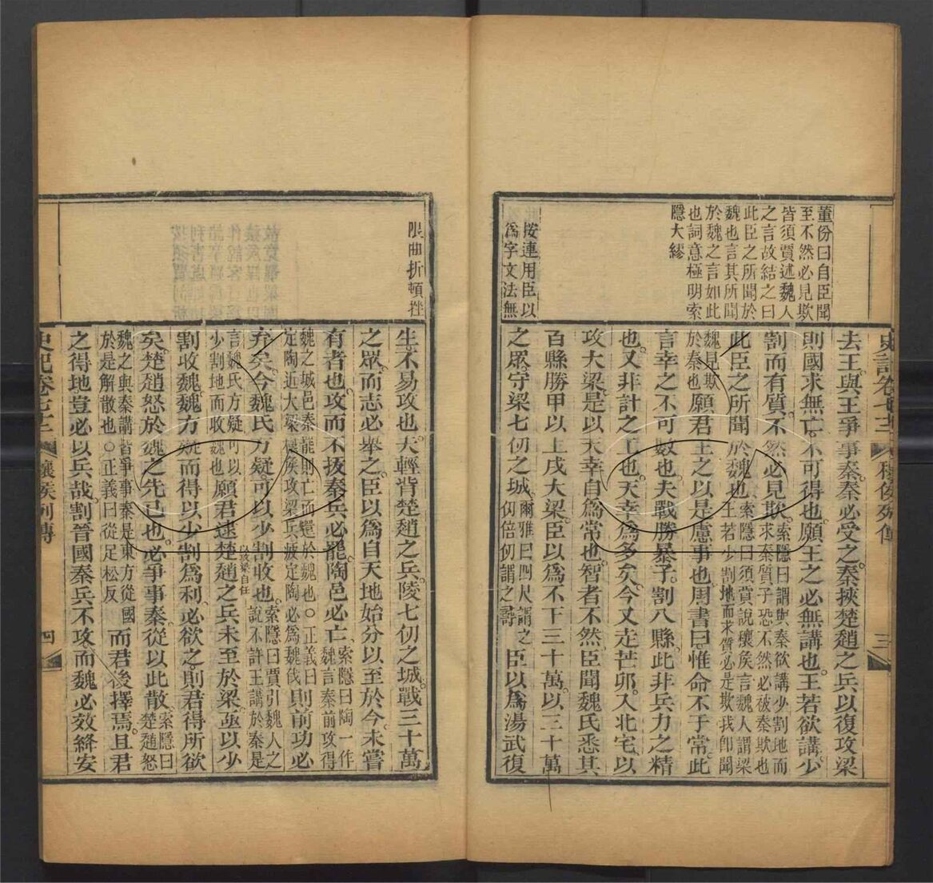 董份曰自臣聞
至不然必見欺
皆須賈述魏人
之言故結之曰
此臣之所聞於
魏也言其所聞
於魏之言如此
也詞意極明索
隱大繆
按連用臣以
爲字文法無
史記卷七十二
穰侯列傳
三
去王與王爭事秦秦必受之秦挾楚趙之兵以復攻梁
則國求無亡不可得也願王之必無講也王若欲講少
割而有質不然必見欺索隱曰謂與秦欲講少割地而求秦質子恐不然必被秦欺也
此臣之所聞於魏也索隱曰須賈說穰侯言魏人謂梁王若少割地而求質必是欺我卽聞
魏見欺於秦也願君王之以是慮事也周書曰惟命不于常此
言幸之不可數也夫戰勝暴子割八縣此非兵力之精
也又非計之工也天幸爲多矣今又走芒卯入北宅以
攻大梁是以天幸自爲常也智者不然臣聞魏氏悉其
百縣勝甲以上戍大梁臣以爲不下三十萬以三十萬
之眾守梁七仞之城爾雅曰四尺謂之仞倍仞謂之尋臣以爲湯武復
限曲折頓挫
生不易攻也夫輕背楚趙之兵陵七仞之城戰三十萬
之眾而志必舉之臣以爲自天地始分以至於今未嘗
有者也攻而不拔秦兵必罷陶邑必亡索隱曰陶一作魏言秦前攻得
魏之城邑秦罷則亡而還於魏也○正義曰定陶近大梁穰侯攻梁兵疲定陶必爲魏伐則前功必
弃矣今魏氏方疑可以少割收也索隱曰賈引魏人之說不許王講於秦是
言魏氏方疑可以少割地而收魏也願君逮楚趙之兵未至於梁亟以少
割收魏魏方疑而得以少割爲利必欲之則君得所欲
矣楚趙怒於魏之先己也必爭事秦從以此散索隱曰楚趙怒
魏之與秦講皆爭事秦是東方從國於是解散也○正義曰從足松反而君後擇焉且君
之得地豈必以兵哉割晉國秦兵不攻而魏必效絳安
史記卷七十二
穰侯列傳
四